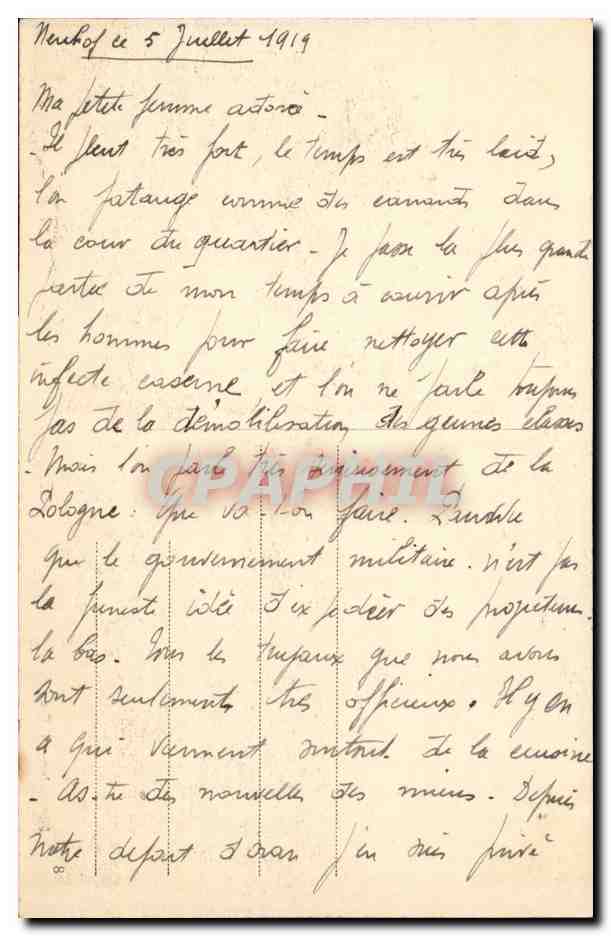 Neuhof ce 5 Juillet 1919
Ma petite femme adorée -
- Il pleut très fort, le temps est très laid,
l'on patauge comme des canards dans
la cour du quartier - Je passe la plus grande
partie de mon temps à courir après
les hommes pour faire nettoyer cette
infecte caserne et l'on ne parle toujours
pas de la démobilisation des jeunes classes
- Mais l'on parle très sérieusement de la
Pologne : Que va-t-on faire.
CPAPHIL
que le gouvernement militaire n'est pas
la funeste idée d'expédier des
la bas - Tous les tuyaux que nous avons
sont seulement très officieux. Il y en
a qui viennent surtout de la cuisine
- As-tu des nouvelles des miens - Depuis
notre depart d'oran j'en suis privé